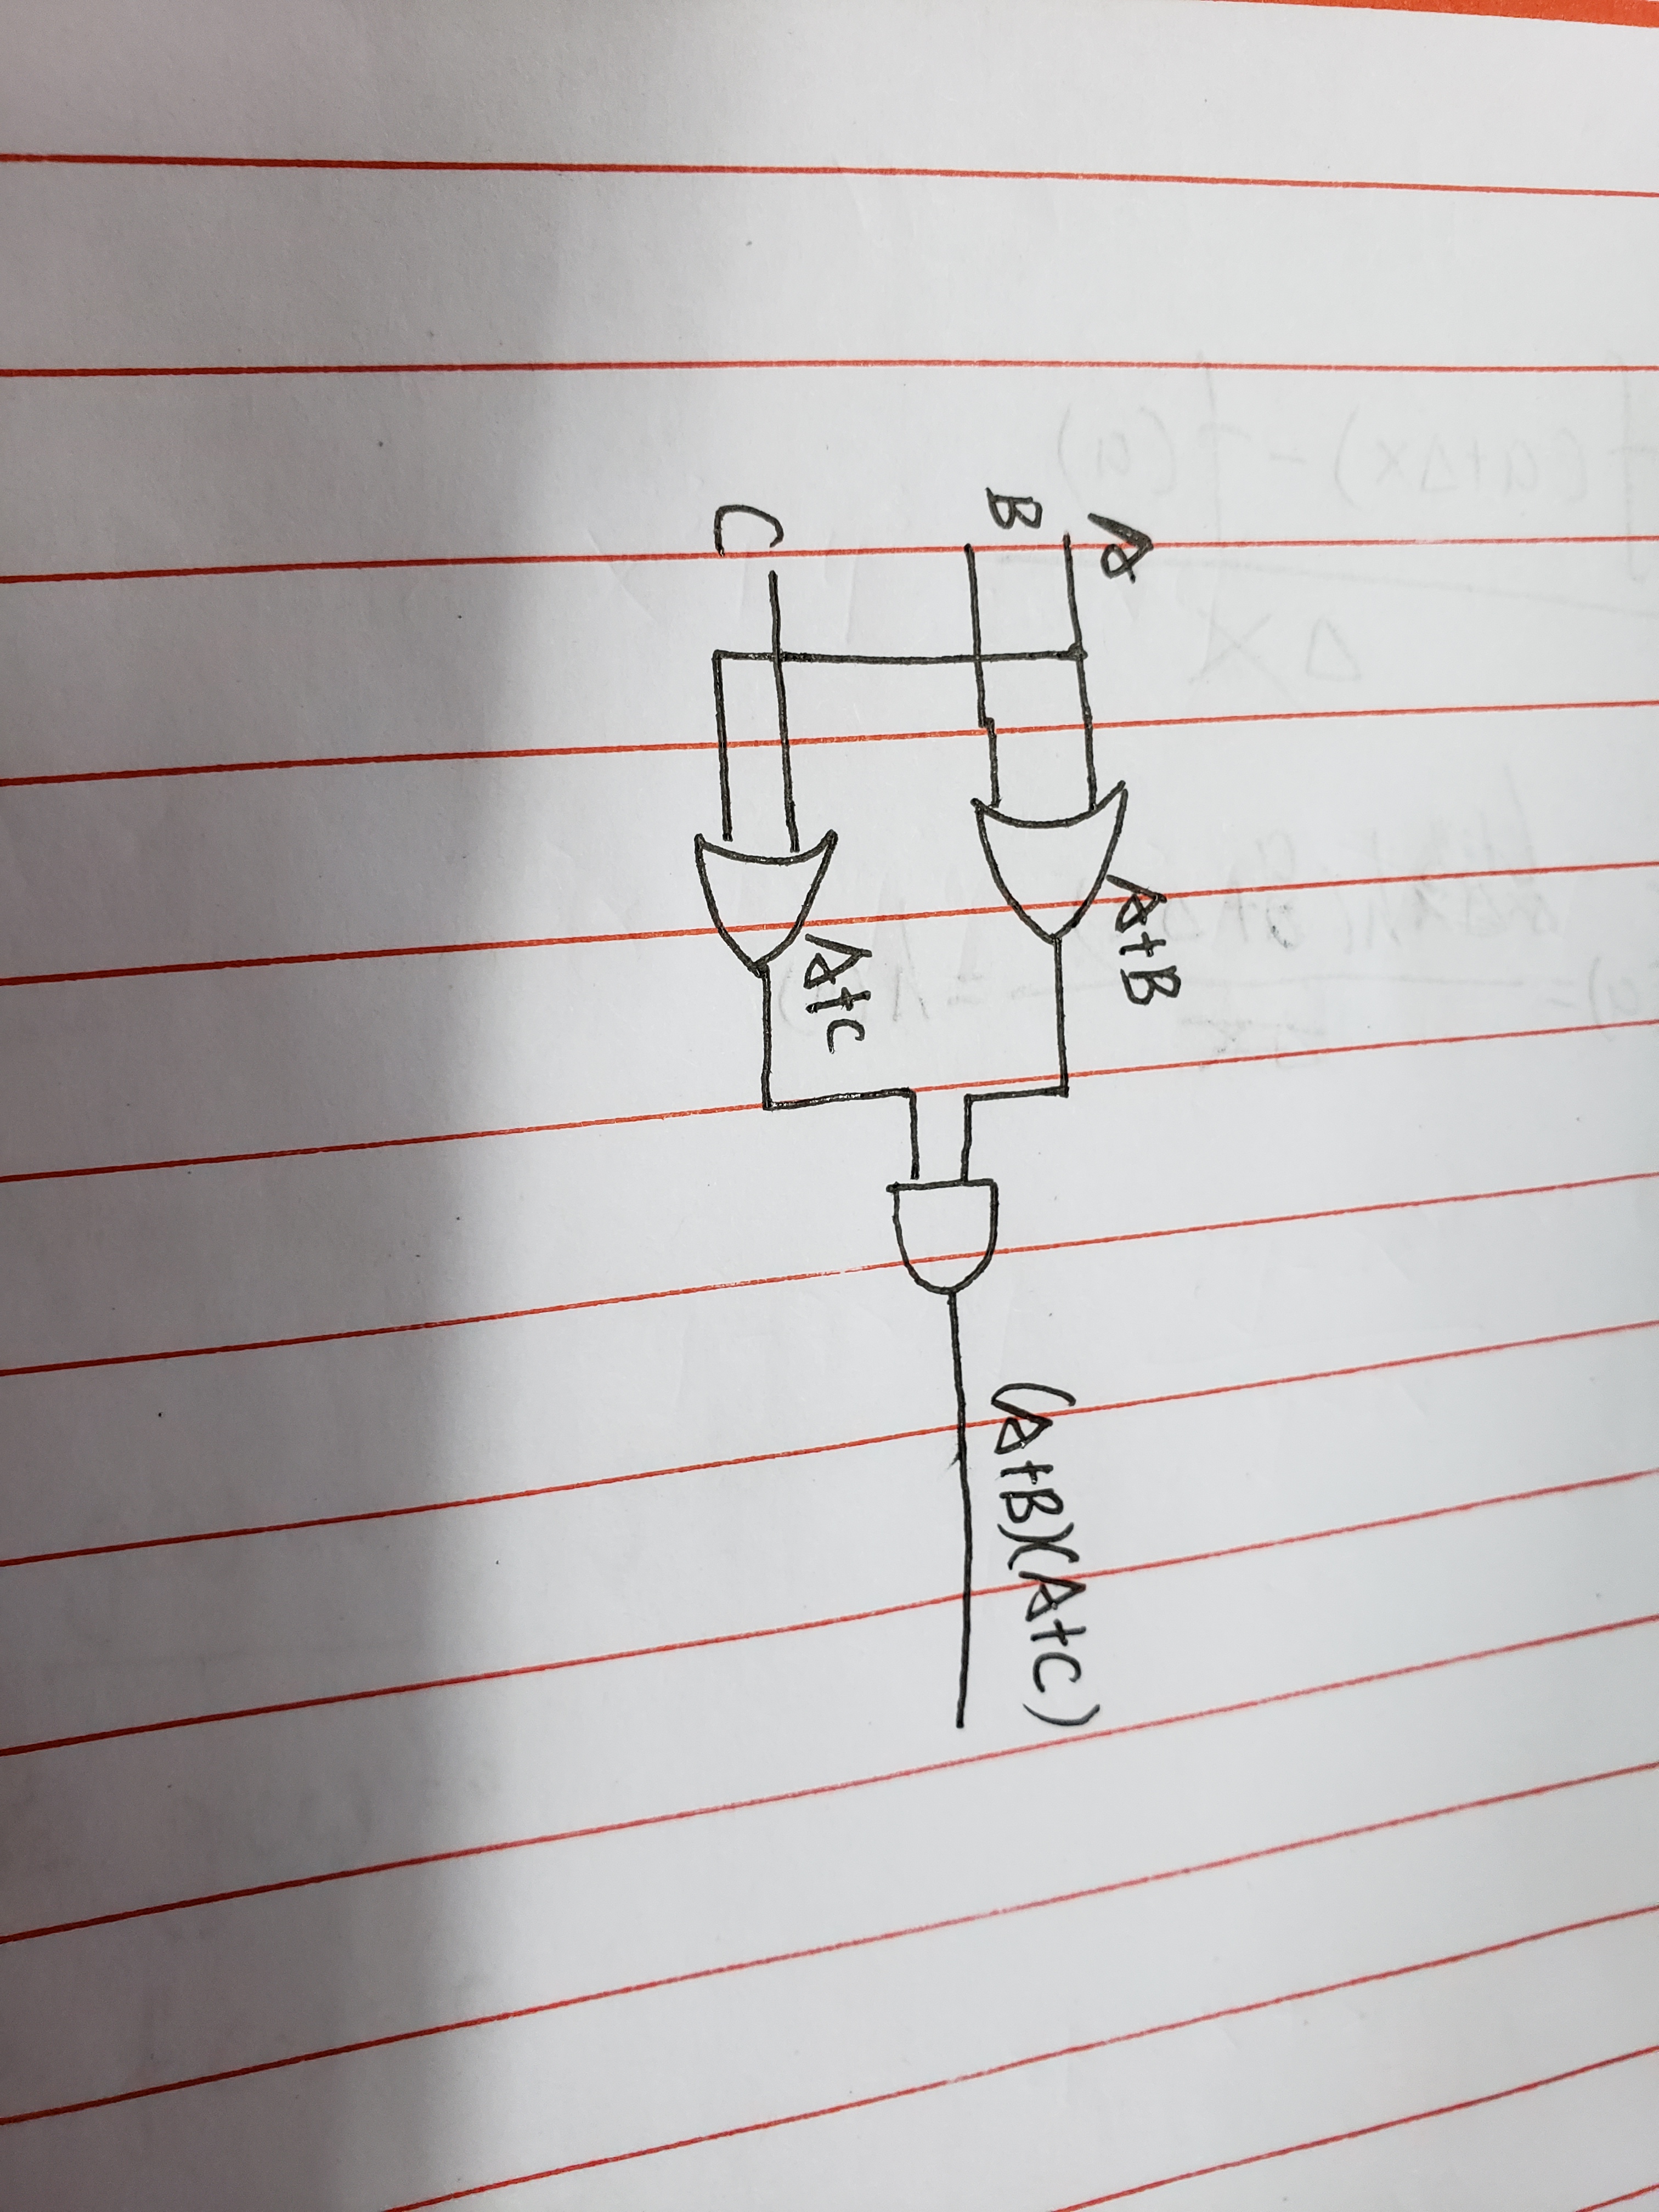 A
B
C
A+B
A+C
(A+B)(A+C)